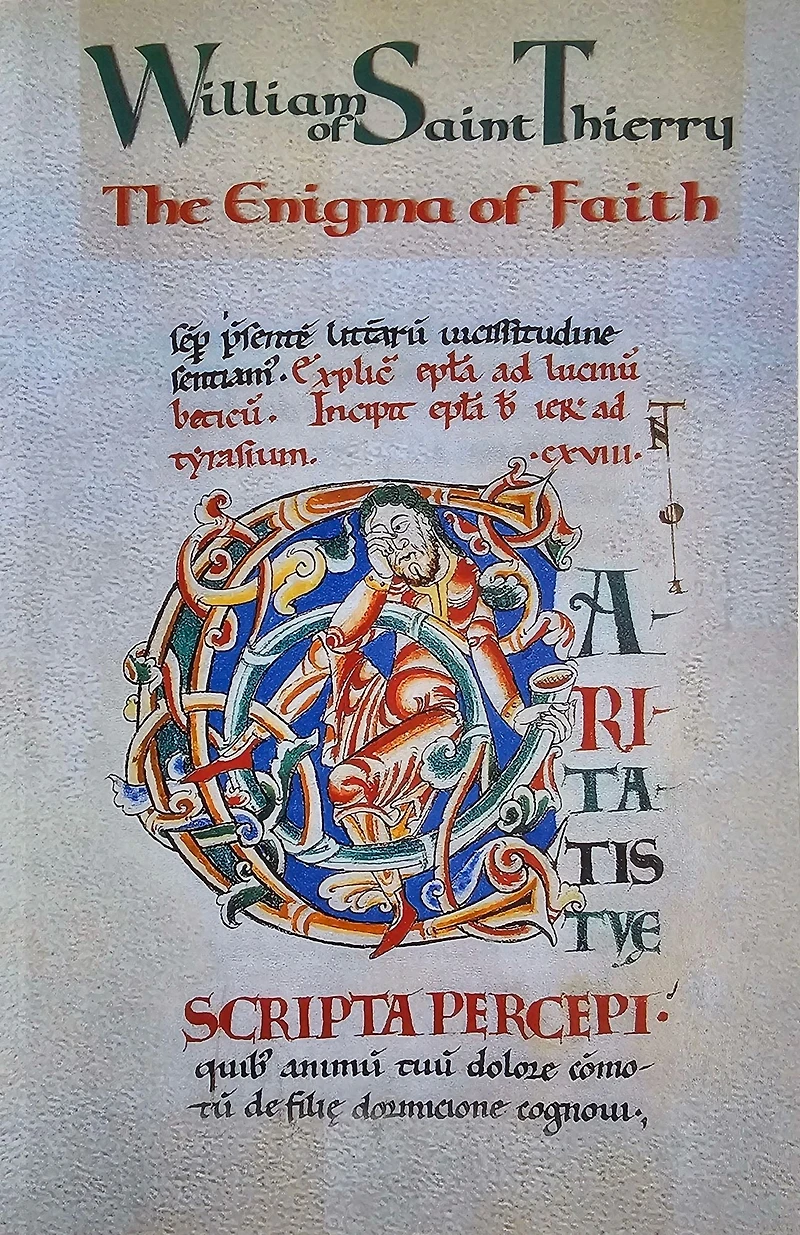 William of Saint Thierry
The Enigma of Faith
sēp p̄sentē litt̄arū uicissitudine
sentiam᾽. Explic̄ ep̄la ad lucinū
beticū. Incipit ep̄la b̄ ier̄ ad
tyrasium. .cxviii.
CA-
RI-
TA-
TIS
TVĘ
SCRIPTA PERCEPI.
quib᾽ animū tuū dolore cōmo-
tū de filię dormicione cognoui.,